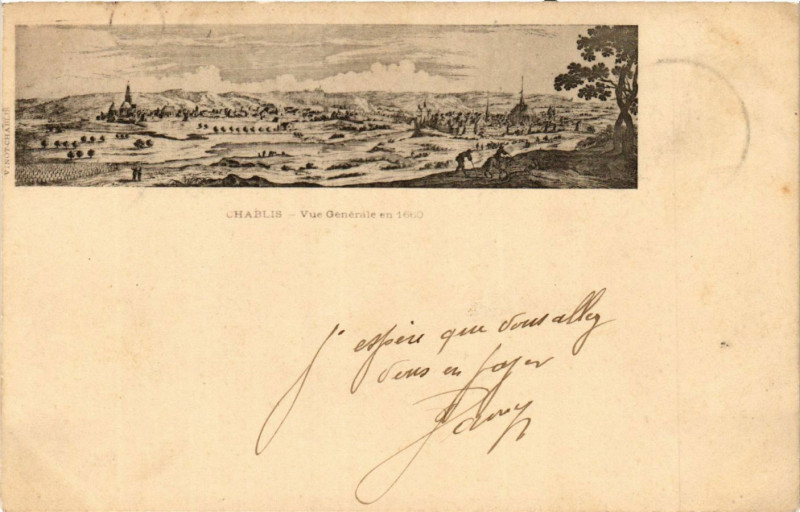 VINOT-CHABLIS
CHABLIS – Vue Générale en 1660
J'espère que vous allez
vous en